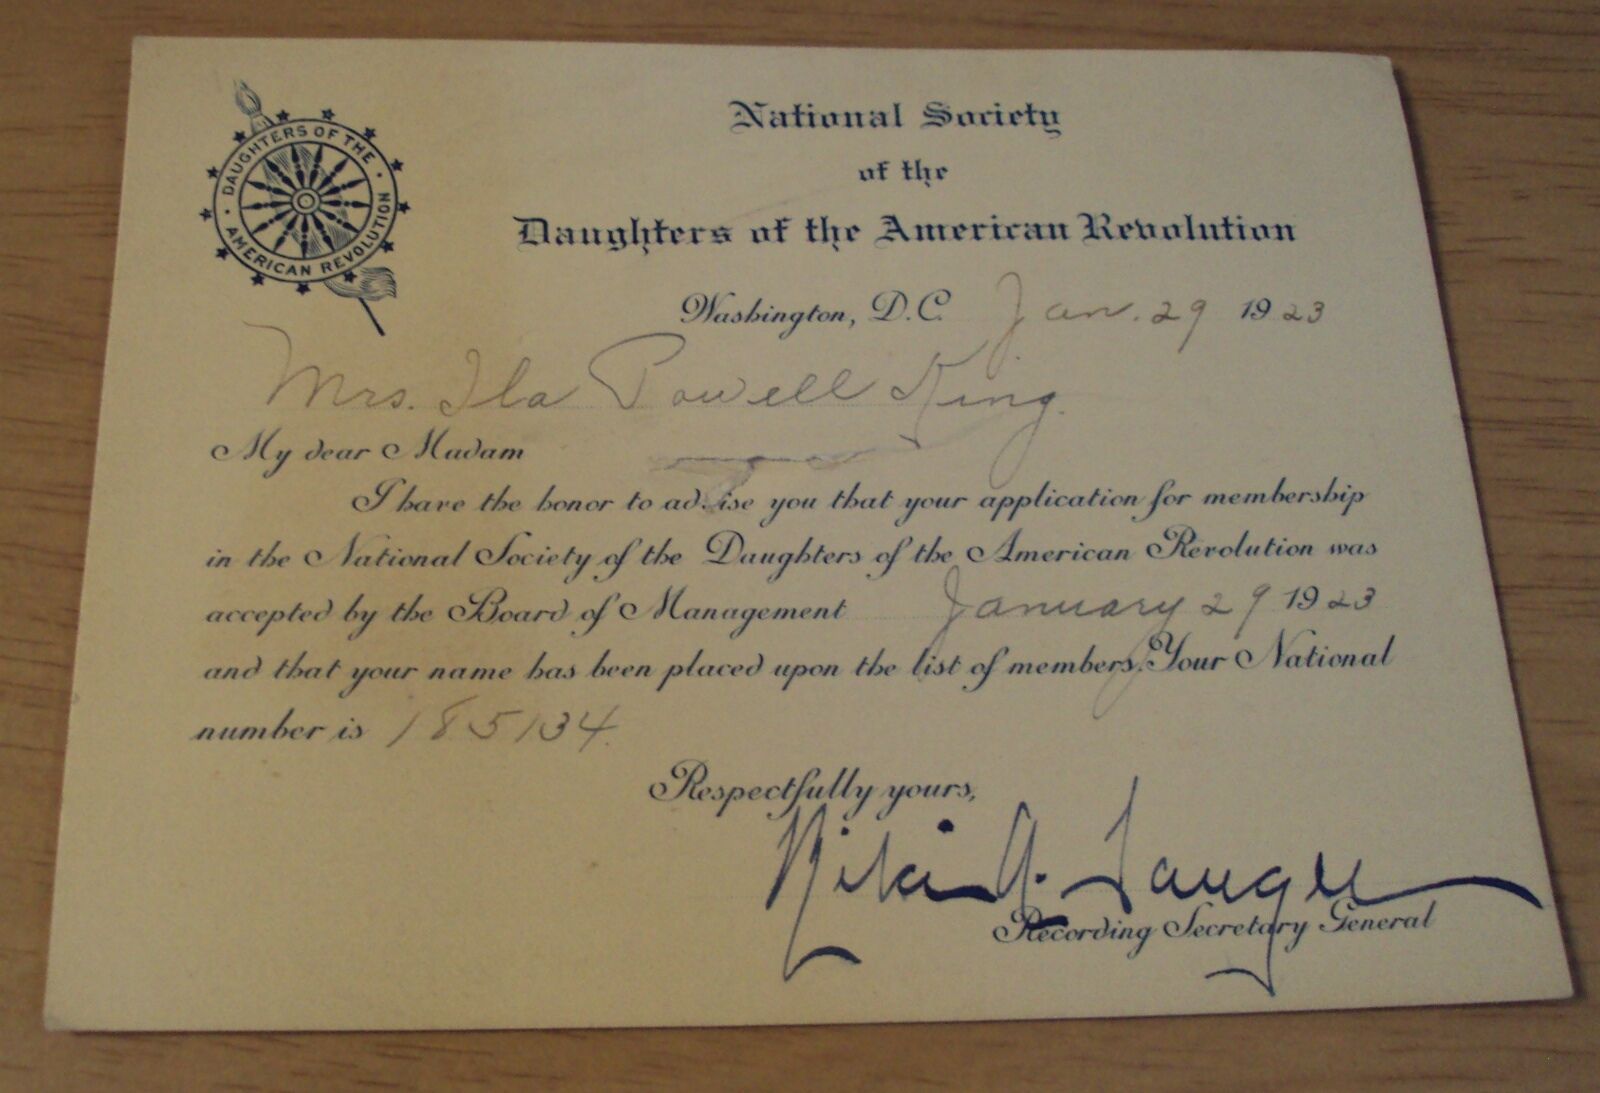 DAUGHTERS OF THE
AMERICAN REVOLUTION
National Society
of the
Daughters of the American Revolution
Washington, D.C. Jan. 29 1923
Mrs. Ila Powell King.
My dear Madam
I have the honor to advise you that your application for membership
in the National Society of the Daughters of the American Revolution was
accepted by the Board of Management January 29 1923
and that your name has been placed upon the list of members. Your National
number is 185134.
Respectfully yours,
Recording Secretary General